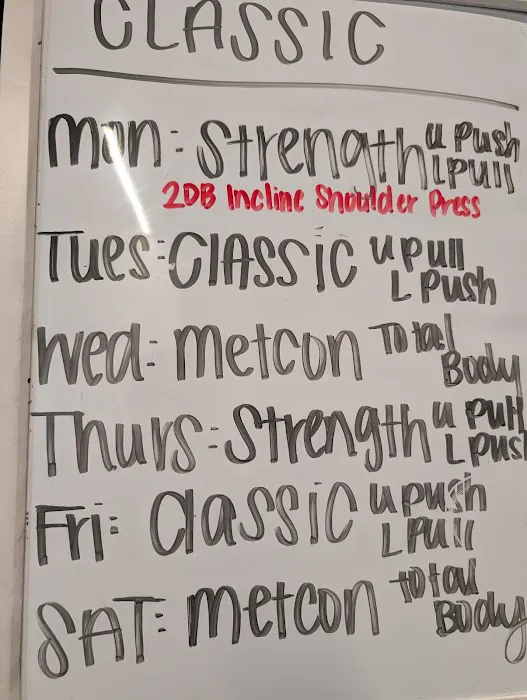 CLASSIC
Mon: Strength U Push
L Pull
2DB Incline Shoulder Press
Tues: CLASSIC U pull
L Push
Wed: Metcon Total
Body
Thurs: Strength U Pull
L Push
Fri: Classic U push
L Pull
SAT: Metcon total
Body